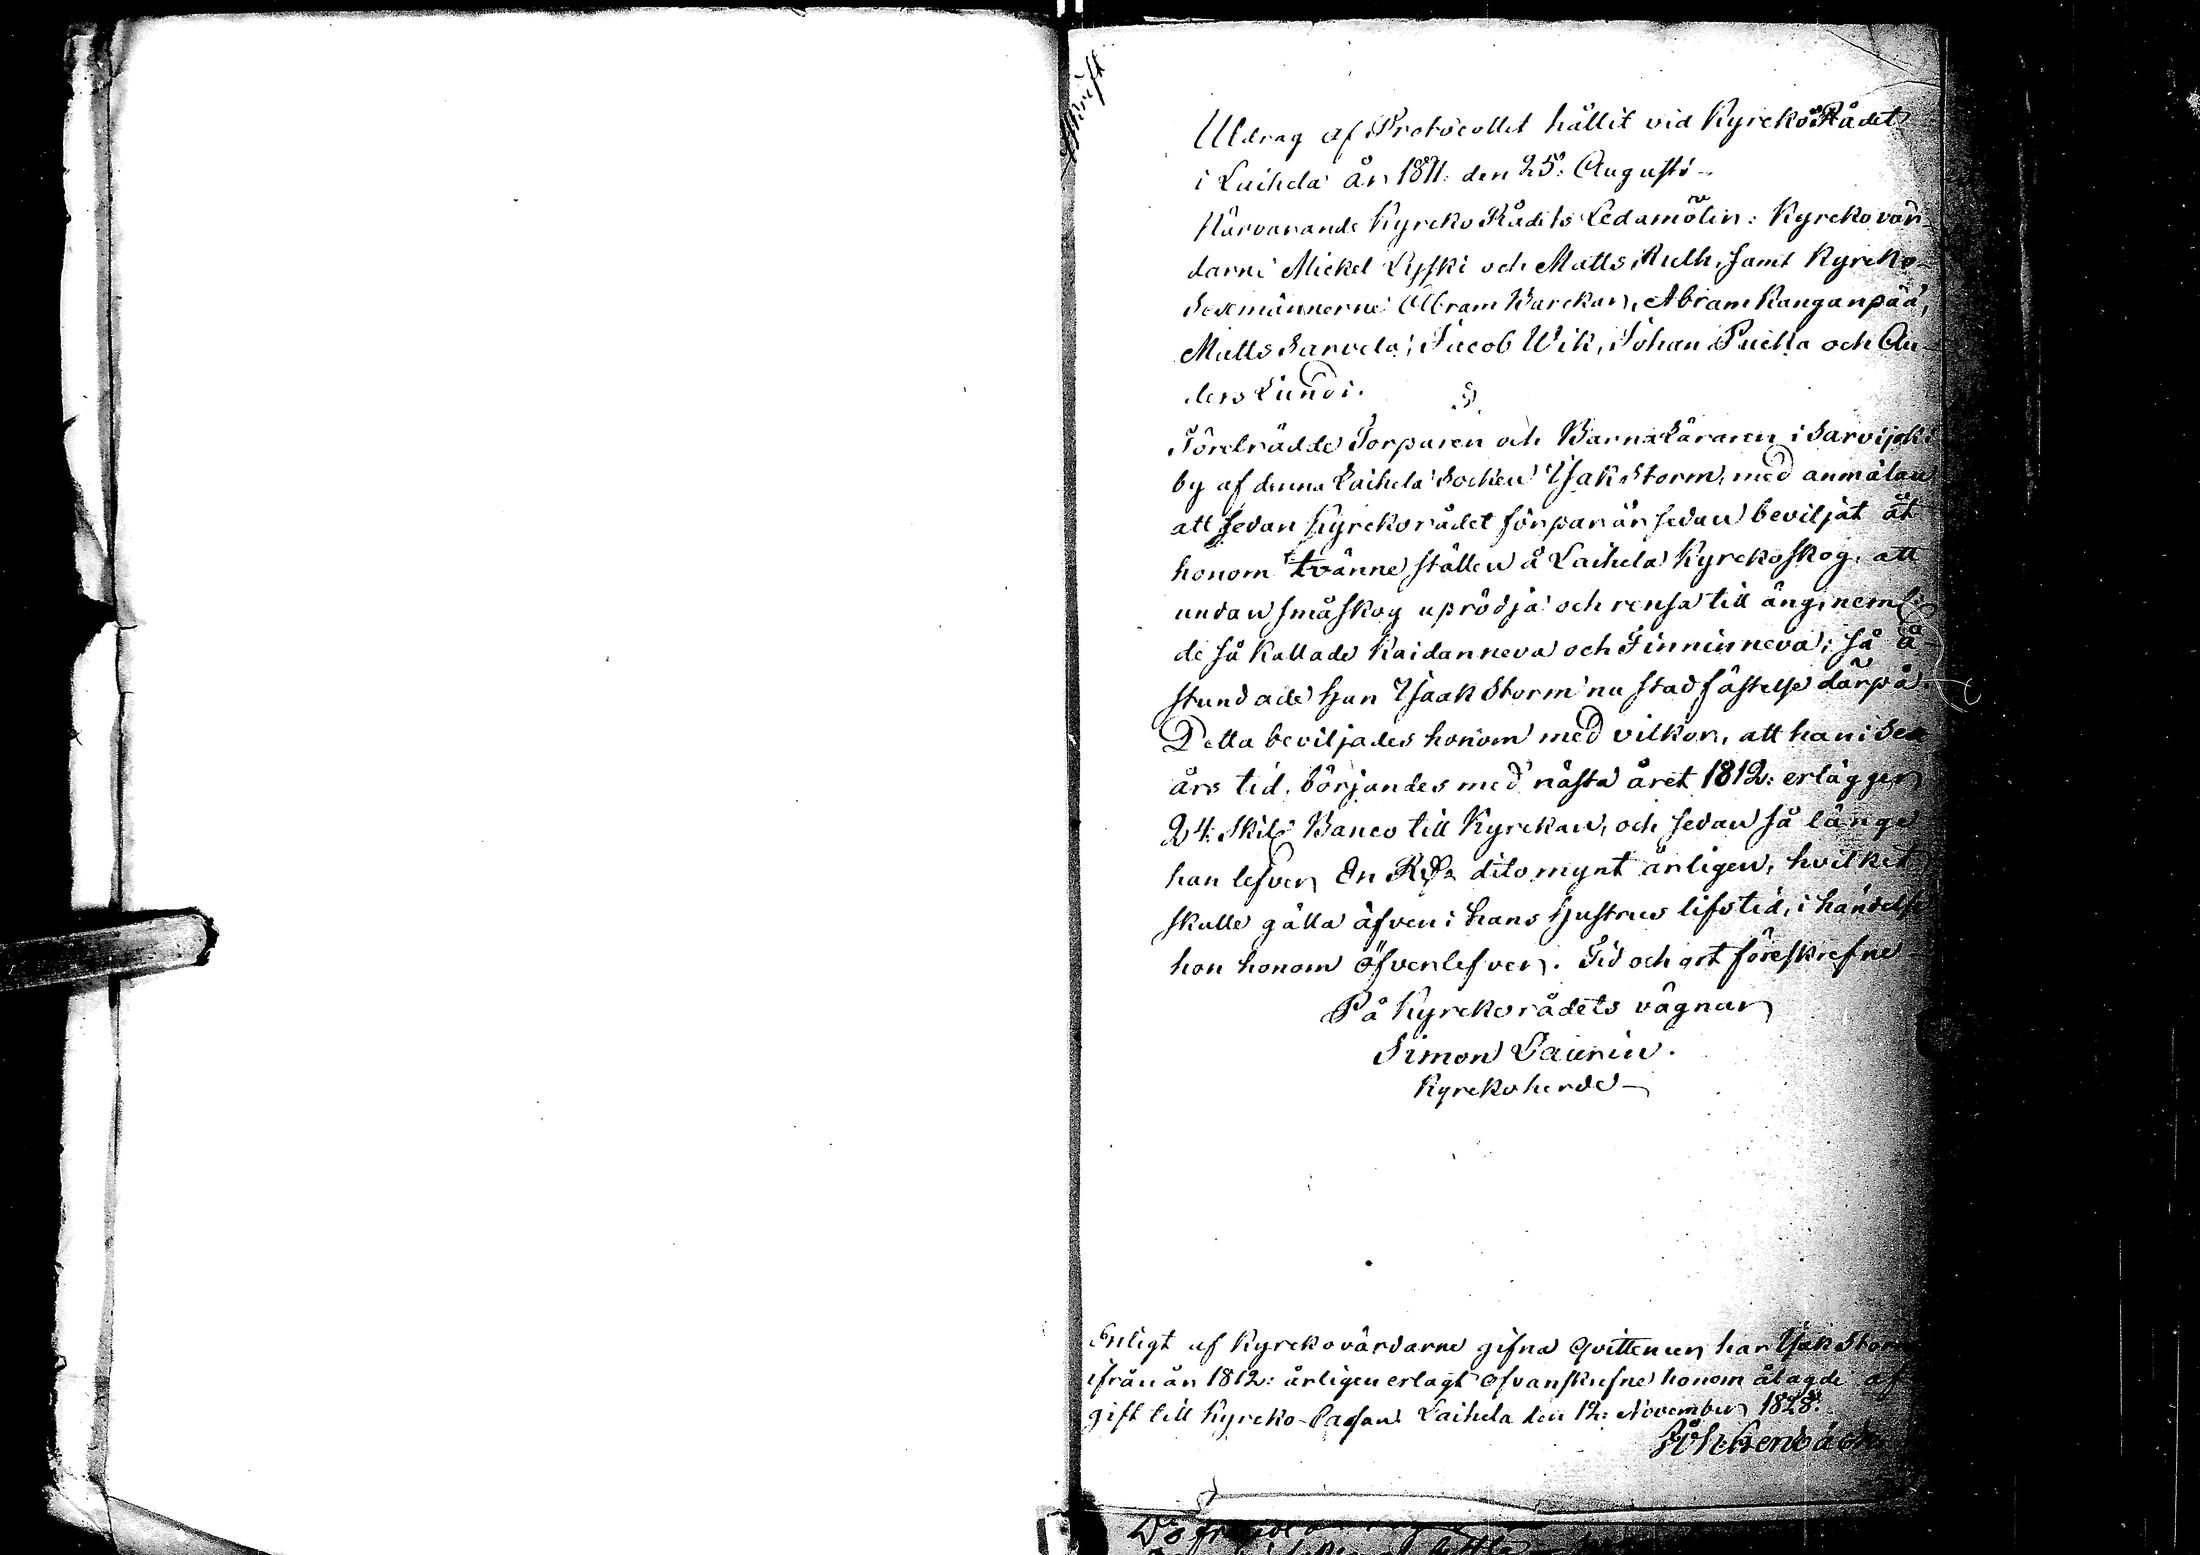 Afskrift
Utdrag af Protocollet hållit vid KyrckoRådet
i Laihela år 1811. den 25. Augusti.
Närvarande KyrckoRådets Ledamöter: Kyrckovär-
darne Mickel Lyski och Matts Ruth, samt Kyrcko-
Sexmännerne Abram Warckar, Abram Kanganpää,
Matts Sarvela, Jacob Wik, Johan Puckla och An-
ders Lundi.
§.
Företrädde Torparen och Barnaläraren i Sarvijoki
by af denna Laihela Socken Isak Storm, med anmälan
att sedan Kyrckorådet för par år sedan beviljat åt
honom tvänne ställen å Laihela Kyrckoskog, att
undan småskog uprödja och rensa till äng, neml:
de så kallade Kaidanneva och Finninneva; så å-
stundade han Isaak Storm nu stadfästelse därpå.
Detta beviljades honom med vilkor, att han i Sex
års tid, börjandes med nästa året 1812: erlägger
24. Skil: Banco till Kyrckan, och sedan så länge
han lefver En Rd. dito mynt årligen, hvilket
skulle gälla äfven i hans Hustrus lifstid, i händelse
hon honom öfverlefver. Tid och ort föreskrefne
På Kyrckorådets vägnar
Simon Laurin.
Kyrckoherde
Enligt af Kyrckovärdarne gifna qvittencer har Isak Storm
ifrån år 1812: årligen erlagt ofvanskrefne honom ålagde af-
gift till Kyrcko-Cassan. Laihela den 12: November 1828.